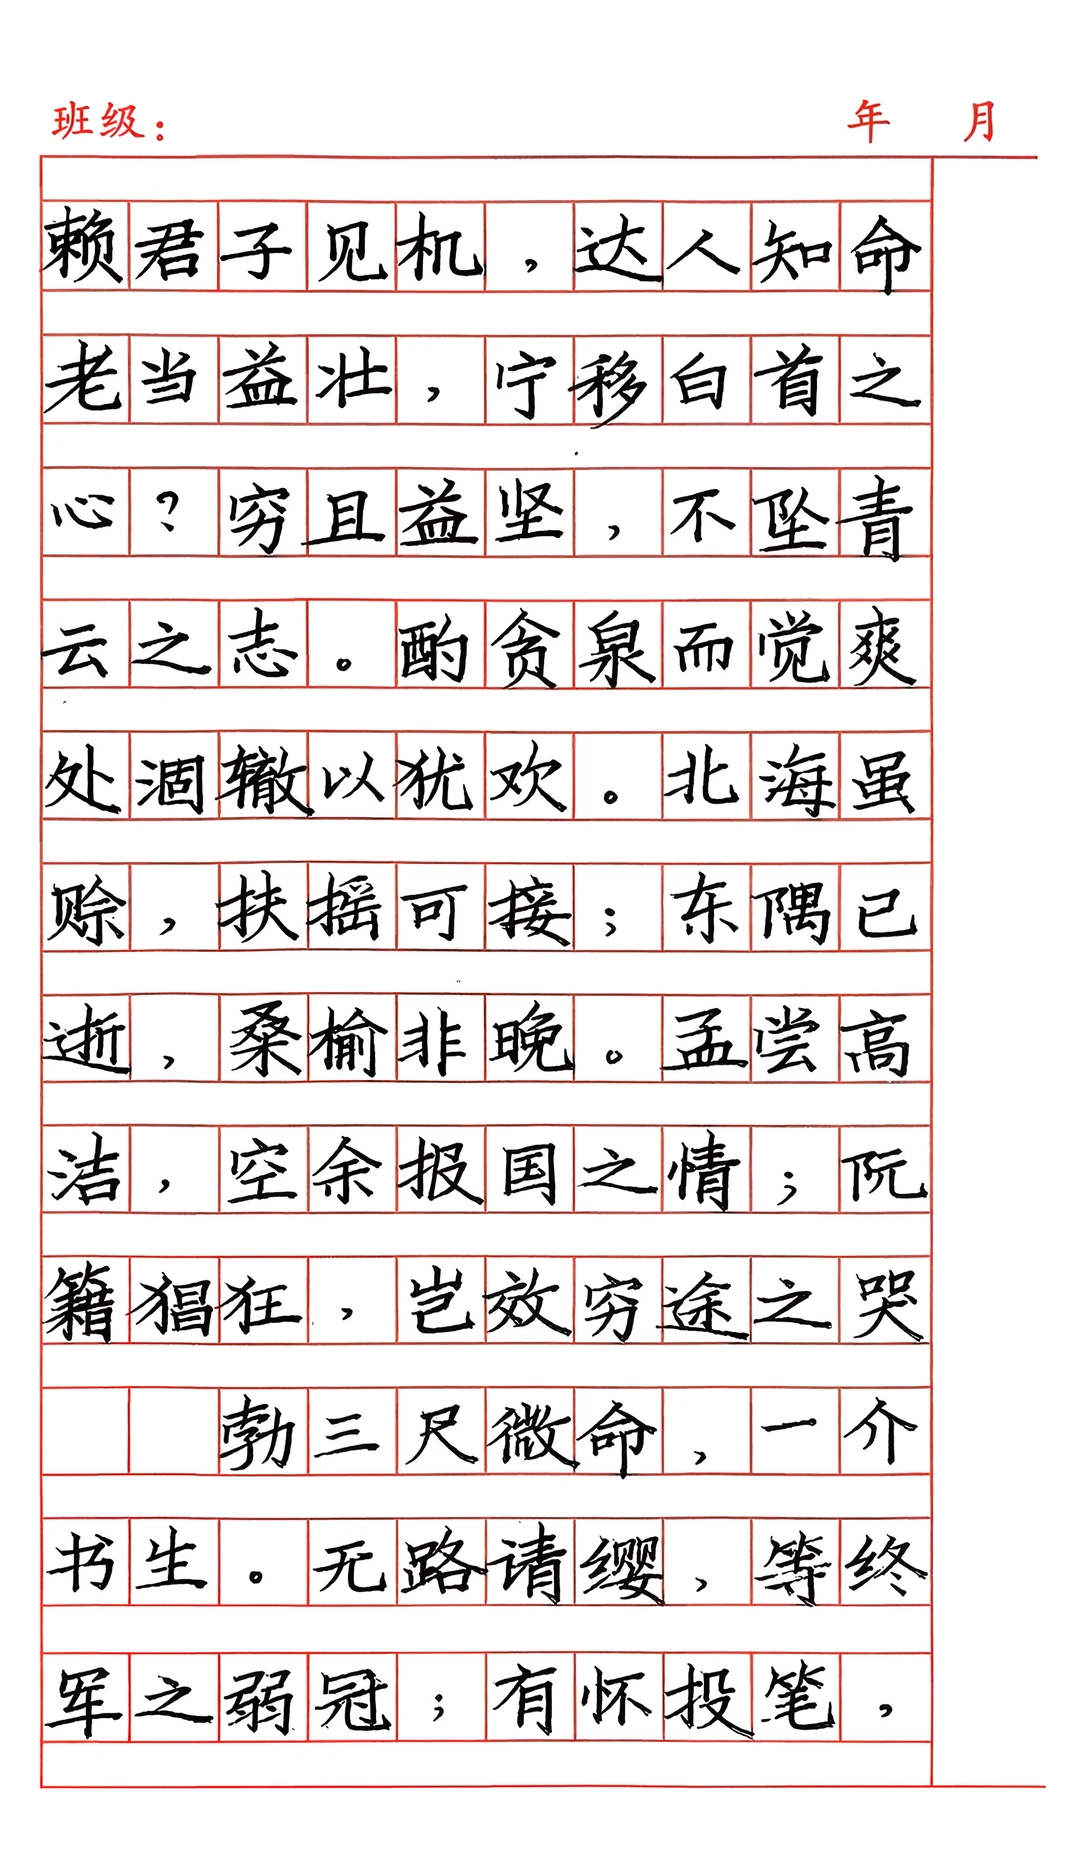 班级： 年 月
赖君子见机，达人知命
老当益壮，宁移白首之
心？穷且益坚，不坠青
云之志。酌贪泉而觉爽
处涸辙以犹欢。北海虽
赊，扶摇可接；东隅已
逝，桑榆非晚。孟尝高
洁，空余报国之情；阮
籍猖狂，岂效穷途之哭
勃三尺微命，一介
书生。无路请缨，等终
军之弱冠；有怀投笔，